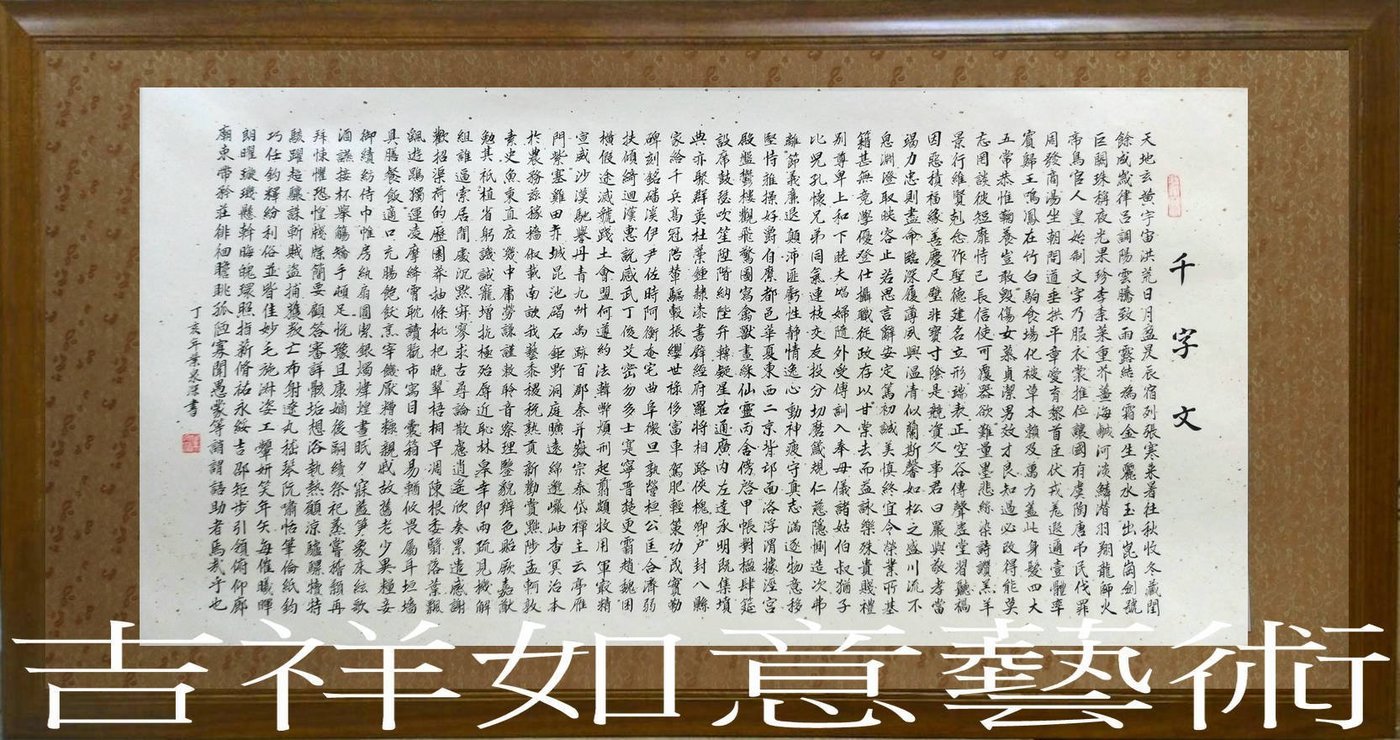 千字文
天地玄黃宇宙洪荒日月盈昃辰宿列張寒來暑往秋收冬藏閏
餘成歲律呂調陽雲騰致雨露結為霜金生麗水玉出崑崗劍號
巨闕珠稱夜光果珍李柰菜重芥薑海鹹河淡鱗潛羽翔龍師火
帝鳥官人皇始制文字乃服衣裳推位讓國有虞陶唐弔民伐罪
周發商湯坐朝問道垂拱平章愛育黎首臣伏戎羌遐邇壹體率
賓歸王鳴鳳在竹白駒食場化被草木賴及萬方蓋此身髮四大
五常恭惟鞠養豈敢毀傷女慕貞潔男效才良知過必改得能莫
忘罔談彼短靡恃己長信使可覆器欲難量墨悲絲染詩讚羔羊
景行維賢剋念作聖德建名立形端表正空谷傳聲虛堂習聽禍
因惡積福緣善慶尺璧非寶寸陰是競資父事君曰嚴與敬孝當
竭力忠則盡命臨深履薄夙興溫清似蘭斯馨如松之盛川流不
息淵澄取映容止若思言辭安定篤初誠美慎終宜令榮業所基
籍甚無竟學優登仕攝職從政存以甘棠去而益詠樂殊貴賤禮
別尊卑上和下睦夫唱婦隨外受傅訓入奉母儀諸姑伯叔猶子
比兒孔懷兄弟同氣連枝交友投分切磨箴規仁慈隱惻造次弗
離節義廉退顛沛匪虧性靜情逸心動神疲守真志滿逐物意移
堅持雅操好爵自縻都邑華夏東西二京背邙面洛浮渭據涇宮
殿盤鬱樓觀飛驚圖寫禽獸畫綵仙靈丙舍傍啓甲帳對楹肆筵
設席鼓瑟吹笙陞階納陛弁轉疑星右通廣內左達承明既集墳
典亦聚群英杜藁鍾隸漆書壁經府羅將相路俠槐卿户封八縣
家給千兵高冠陪輦驅轂振纓世祿侈富車駕肥輕策功茂實勒
碑刻銘磻溪伊尹佐時阿衡奄宅曲阜微旦孰營桓公匡合濟弱
扶傾綺迴漢惠說感武丁俊乂密勿多士寔寧晉楚更霸趙魏困
橫假途滅虢踐土會盟何遵約法韓弊煩刑起翦頗牧用軍最精
宣威沙漠馳譽丹青九州禹跡百郡秦并嶽宗泰岱禪主云亭雁
門紫塞雞田赤城昆池碣石鉅野洞庭曠遠綿邈巖岫杳冥治本
於農務茲稼穡俶載南畝我藝黍稷稅熟貢新勸賞黜陟孟軻敦
素史魚秉直庶幾中庸勞謙謹敕聆音察理鑒貌辨色貽厥嘉猷
勉其祗植省躬譏誡寵增抗極殆辱近恥林皋幸即兩疏見機解
組誰逼索居閒處沉默寂寥求古尋論散慮逍遙欣奏累遣慼謝
歡招渠荷的歷園莽抽條枇杷晚翠梧桐早凋陳根委翳落葉飄
颻遊鵾獨運凌摩絳霄耽讀翫市寓目囊箱易輶攸畏屬耳垣墻
具膳餐飯適口充腸飽飫烹宰饑厭糟糠親戚故舊老少異糧妾
御績紡侍巾帷房紈扇圓潔銀燭煒煌晝眠夕寐藍筍象床絃歌
酒讌接杯舉觴矯手頓足悅豫且康嫡後嗣續祭祀蒸嘗稽顙再
拜悚懼恐惶牋牒簡要顧答審詳骸垢想浴執熱願涼驢騾犢特
駭躍超驤誅斬賊盜捕獲叛亡布射遼丸嵇琴阮嘯恬筆倫紙鈞
巧任釣釋紛利俗並皆佳妙毛施淑姿工顰妍笑年矢每催曦暉
朗曜璇璣懸斡晦魄環照指薪脩祜永綏吉劭矩步引領俯仰廊
廟束帶矜莊徘徊瞻眺孤陋寡聞愚蒙等誚謂語助者焉哉乎也
丁亥年葉泉書
吉祥如意藝術